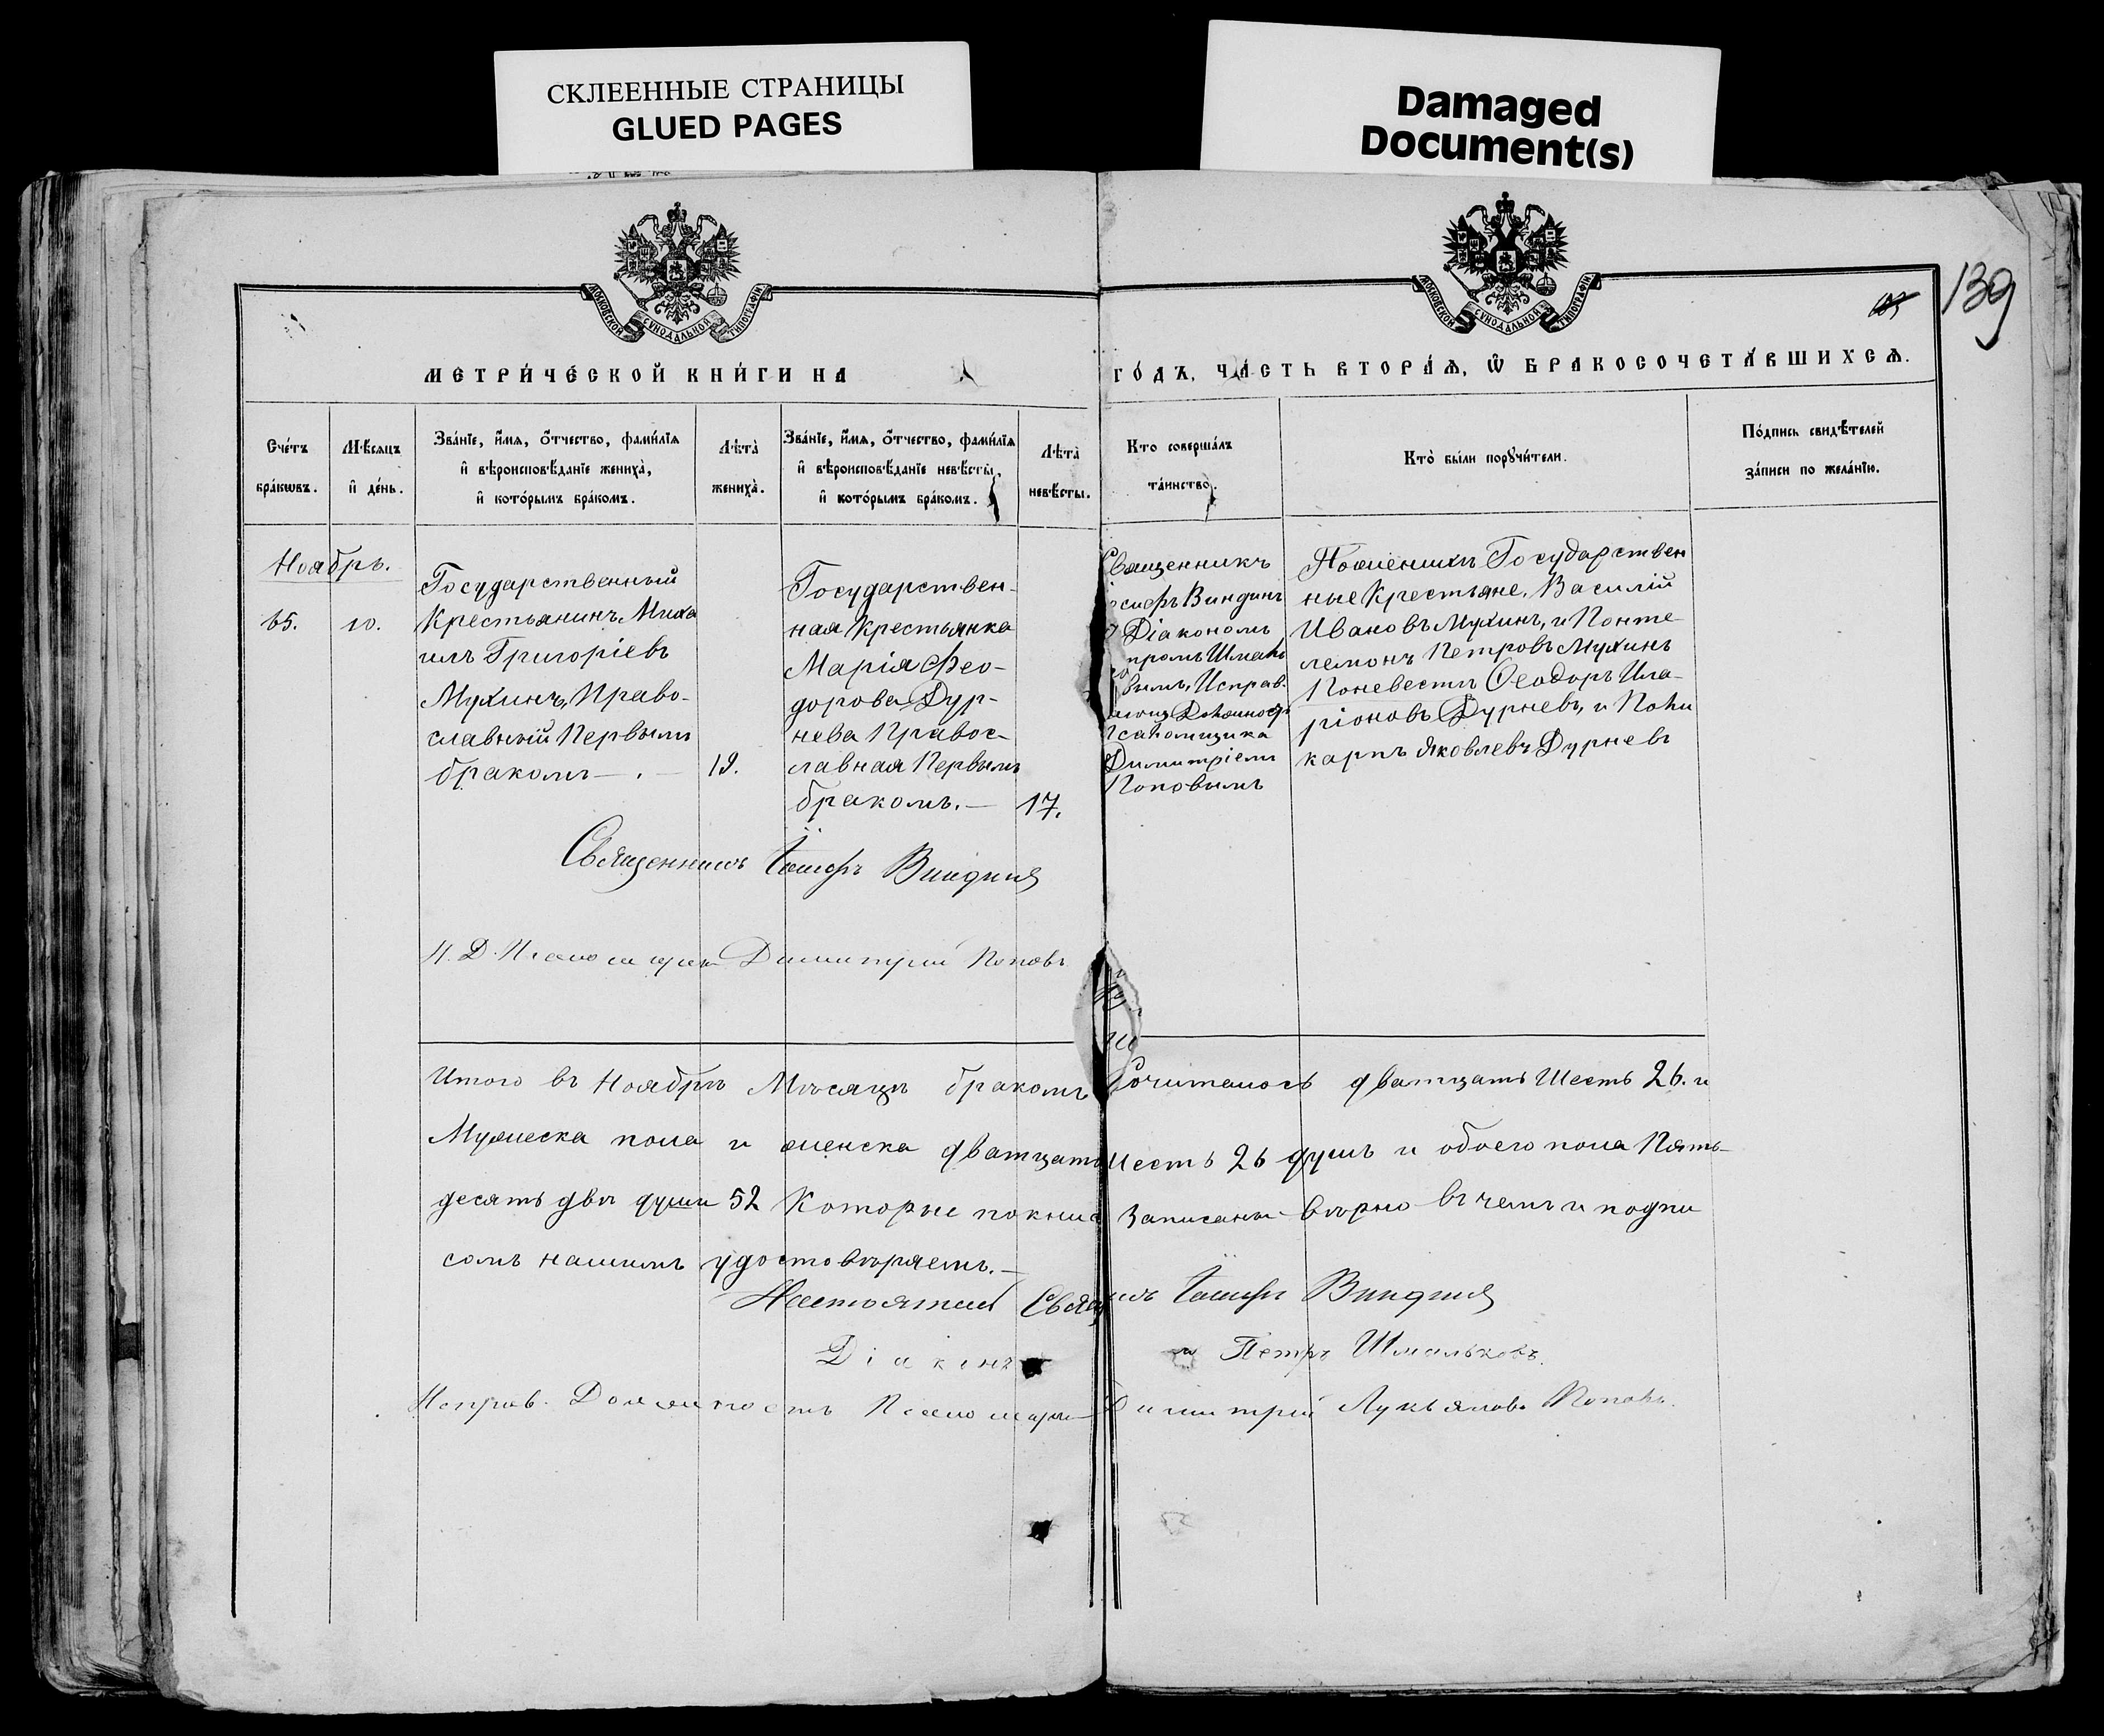 СКЛЕЕННЫЕ СТРАНИЦЫ
GLUED PAGES
Damaged
Document(s)
МОСКОВСКОЙ СѴНОДАЛЬНОЙ ТИПОГРАФІИ
МОСКОВСКОЙ СѴНОДАЛЬНОЙ ТИПОГРАФІИ
139
МЕТРИ́ЧЕСКОЙ КНИ́ГИ НА
ГО́ДЪ, ЧА́СТЬ ВТОРА́Ѧ, Ѡ҆ БРАКОСОЧЕТА́ВШИХСѦ.
Сче́тъ
бра́кѡвъ.
Мѣ́сѧцъ
и҆ де́нь.
Зва́нїе, и҆́мѧ, о҆́тчество, фами́лїѧ
и҆ вѣроисповѣ́данїе жениха̀,
и҆ кото́рымъ бра́комъ.
Лѣ́та̀
жениха̀.
Зва́нїе, и҆́мѧ, о҆́тчество, фами́лїѧ
и҆ вѣроисповѣ́данїе невѣ́сты,
и҆ кото́рымъ бра́комъ.
Лѣ́та̀
невѣ́сты.
Кто совершáлъ
та́инство.
Кто̀ бы́ли порꙋчи́тели.
По́дпись свидѣ́телей
за́писи по жела́нїю.
Ноябрь.
65.
10.
Государственный
Крестьянинъ Миха
илъ Григоріевъ
Мухинъ, Право-
славный Первымъ
бракомъ—.—
19.
Государствен-
ная Крестьянка
Марія Фео-
дорова Дур-
нева Правос-
лавная Первымъ
бракомъ.—
17.
Священникъ
Іосифъ Виндинъ
Діакономъ
Петромъ Шмаль
ковымъ, Исправ.
Должность
Псаломщика
Димитріемъ
Поповымъ
По женихъ Государствен
ные Крестьяне, Василій
Ивановъ Мухинъ, и Понте-
лемонъ Петровъ Мухинъ
По невестъ Ѳеодоръ Ила-
ріоновъ Дурневъ, и Поли
карпъ Яковлевъ Дурневъ
Священникъ Іосифъ Виндинъ
И. Д. Псаломщика Димитрій Поповъ
Итого въ Ноябрѣ Мѣсяцѣ бракомъ Сочиталось дватцать Шесть 26. и
Мужеска пола и женска дватцать шесть 26 душъ и обоего пола Пять-
десять двѣ души 52 Которые по книг Записаны вѣрно въ чемъ и подпи
сомъ нашимъ удостовѣряемъ.—
Настоятель Свящ Іосифъ Виндинъ
Діаконъ Петръ Шмальковъ.
Исправ. Должность Псаломщика Димитрій Лукьяновъ Поповъ.